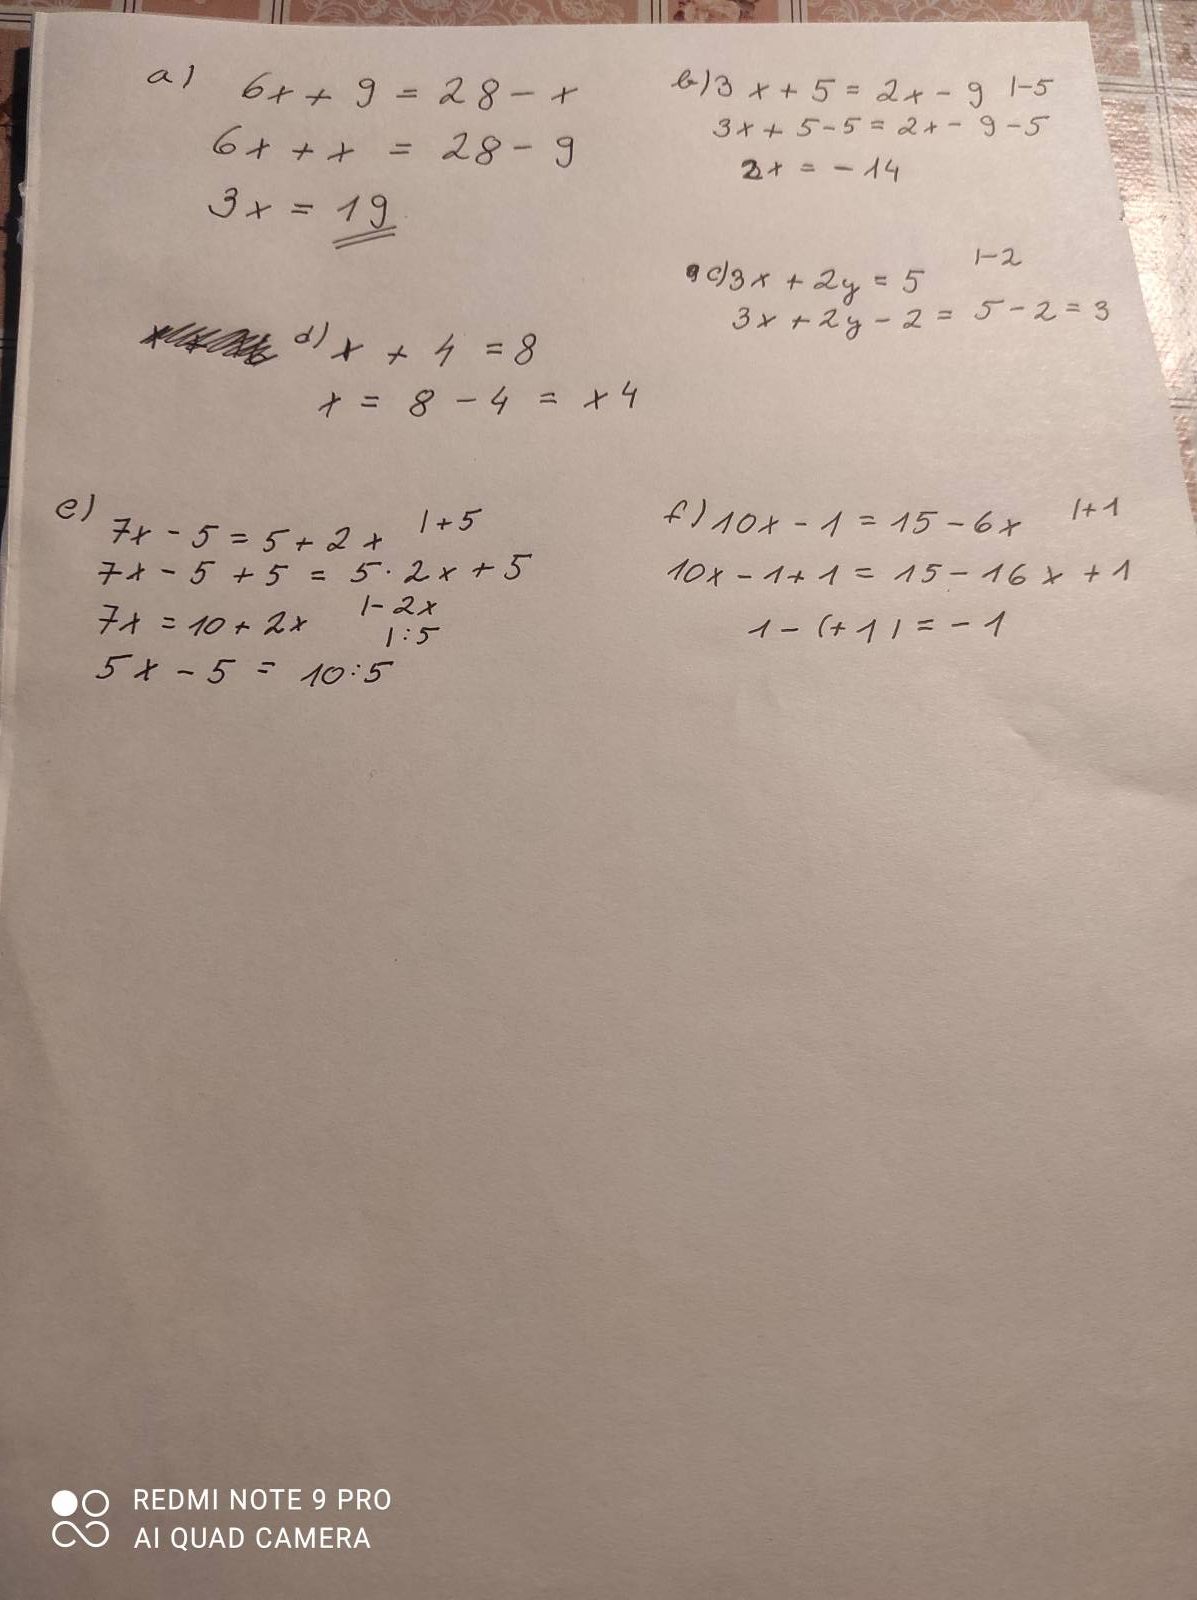 a) 6x + 9 = 28 - x
6x + x = 28 - 9
3x = 19
b) 3x + 5 = 2x - 9 |-5
3x + 5 - 5 = 2x - 9 - 5
2x = - 14
c) 3x + 2y = 5 |-2
3x + 2y - 2 = 5 - 2 = 3
d) x + 4 = 8
x = 8 - 4 = x4
e) 7x - 5 = 5 + 2x |+5
7x - 5 + 5 = 5 · 2x + 5
7x = 10 + 2x |- 2x
|:5
5x - 5 = 10:5
f) 10x - 1 = 15 - 6x |+1
10x - 1 + 1 = 15 - 16x + 1
1 - (+1) = - 1
REDMI NOTE 9 PRO
AI QUAD CAMERA